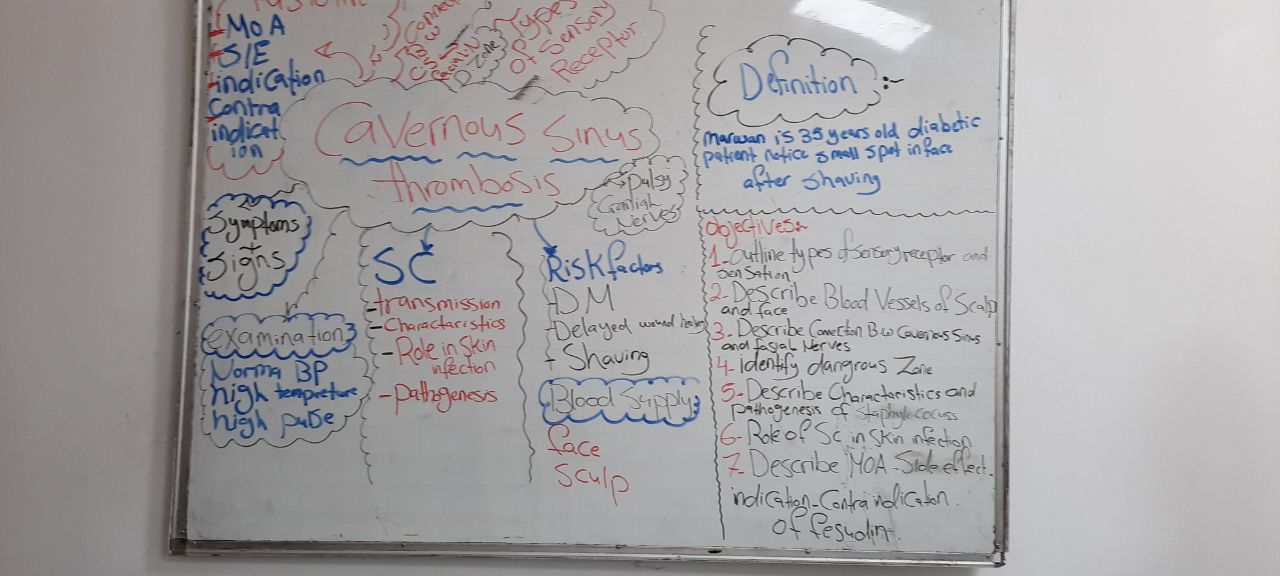 MOA
S/E
indication
Contra
indicat
ion
Connec
B.W
Zone
Types
of Sensory
Receptor
Cavernous Sinus
thrombosis
Pulsy
Cranial
Nerves
Symptoms
+
Signs
examination
Norma BP
high tempreture
high pulse
SC
-transmission
-Charactaristics
-Role in Skin
infection
-pathogenesis
Risk factors
-DM
-Delayed wound healing
+ Shaving
Blood Supply
face
Sculp
Definition :-
marwan is 35 years old diabetic
patient notice small spot in face
after shaving
objectives:-
1-outline types of sensory receptor and
sensation
2-Describe Blood Vessels of Scalp
and face
3-Describe Connection B.w Cavernous Sinus
and fasial Nerves
4-Identify dangrous Zone
5-Describe Characteristics and
pathogenesis of staphylococuss
6-Role of Sc in skin infection
7-Describe MOA-Side effect.
indication-Contraindication.
Of fesudin.